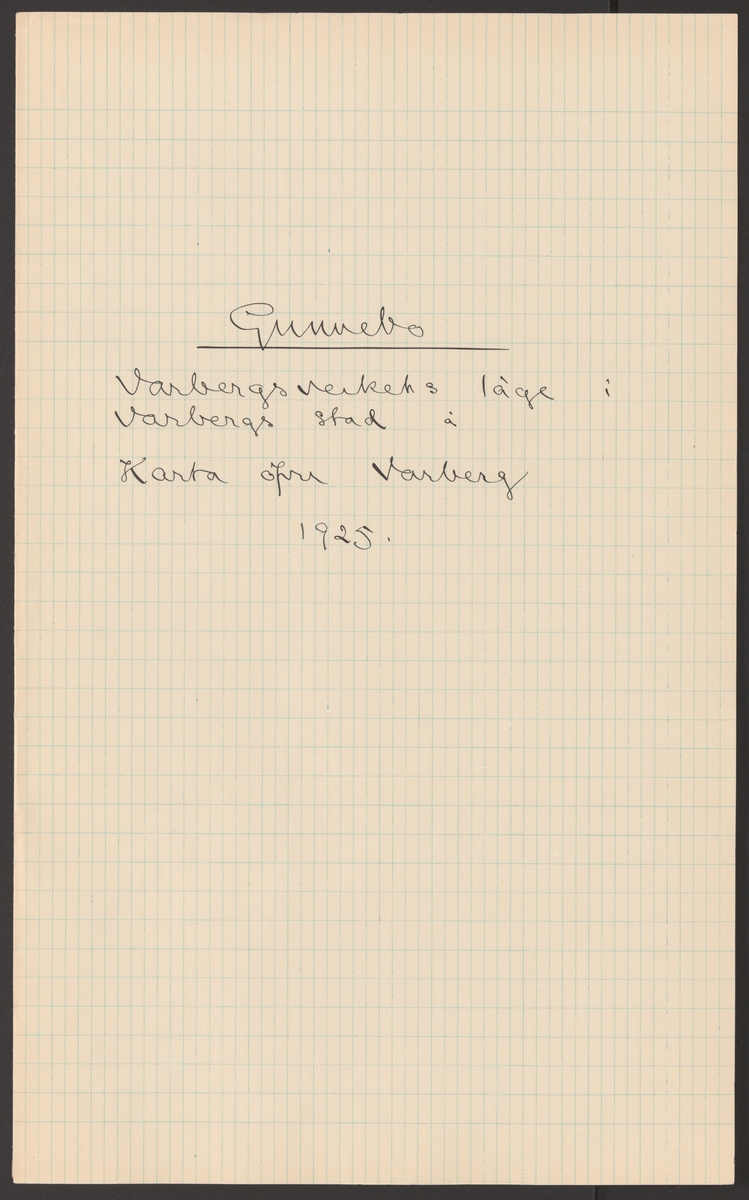 Gunnebo
Varbergsverkets läge i
Varbergs stad å
Karta öfver Varberg
1925.